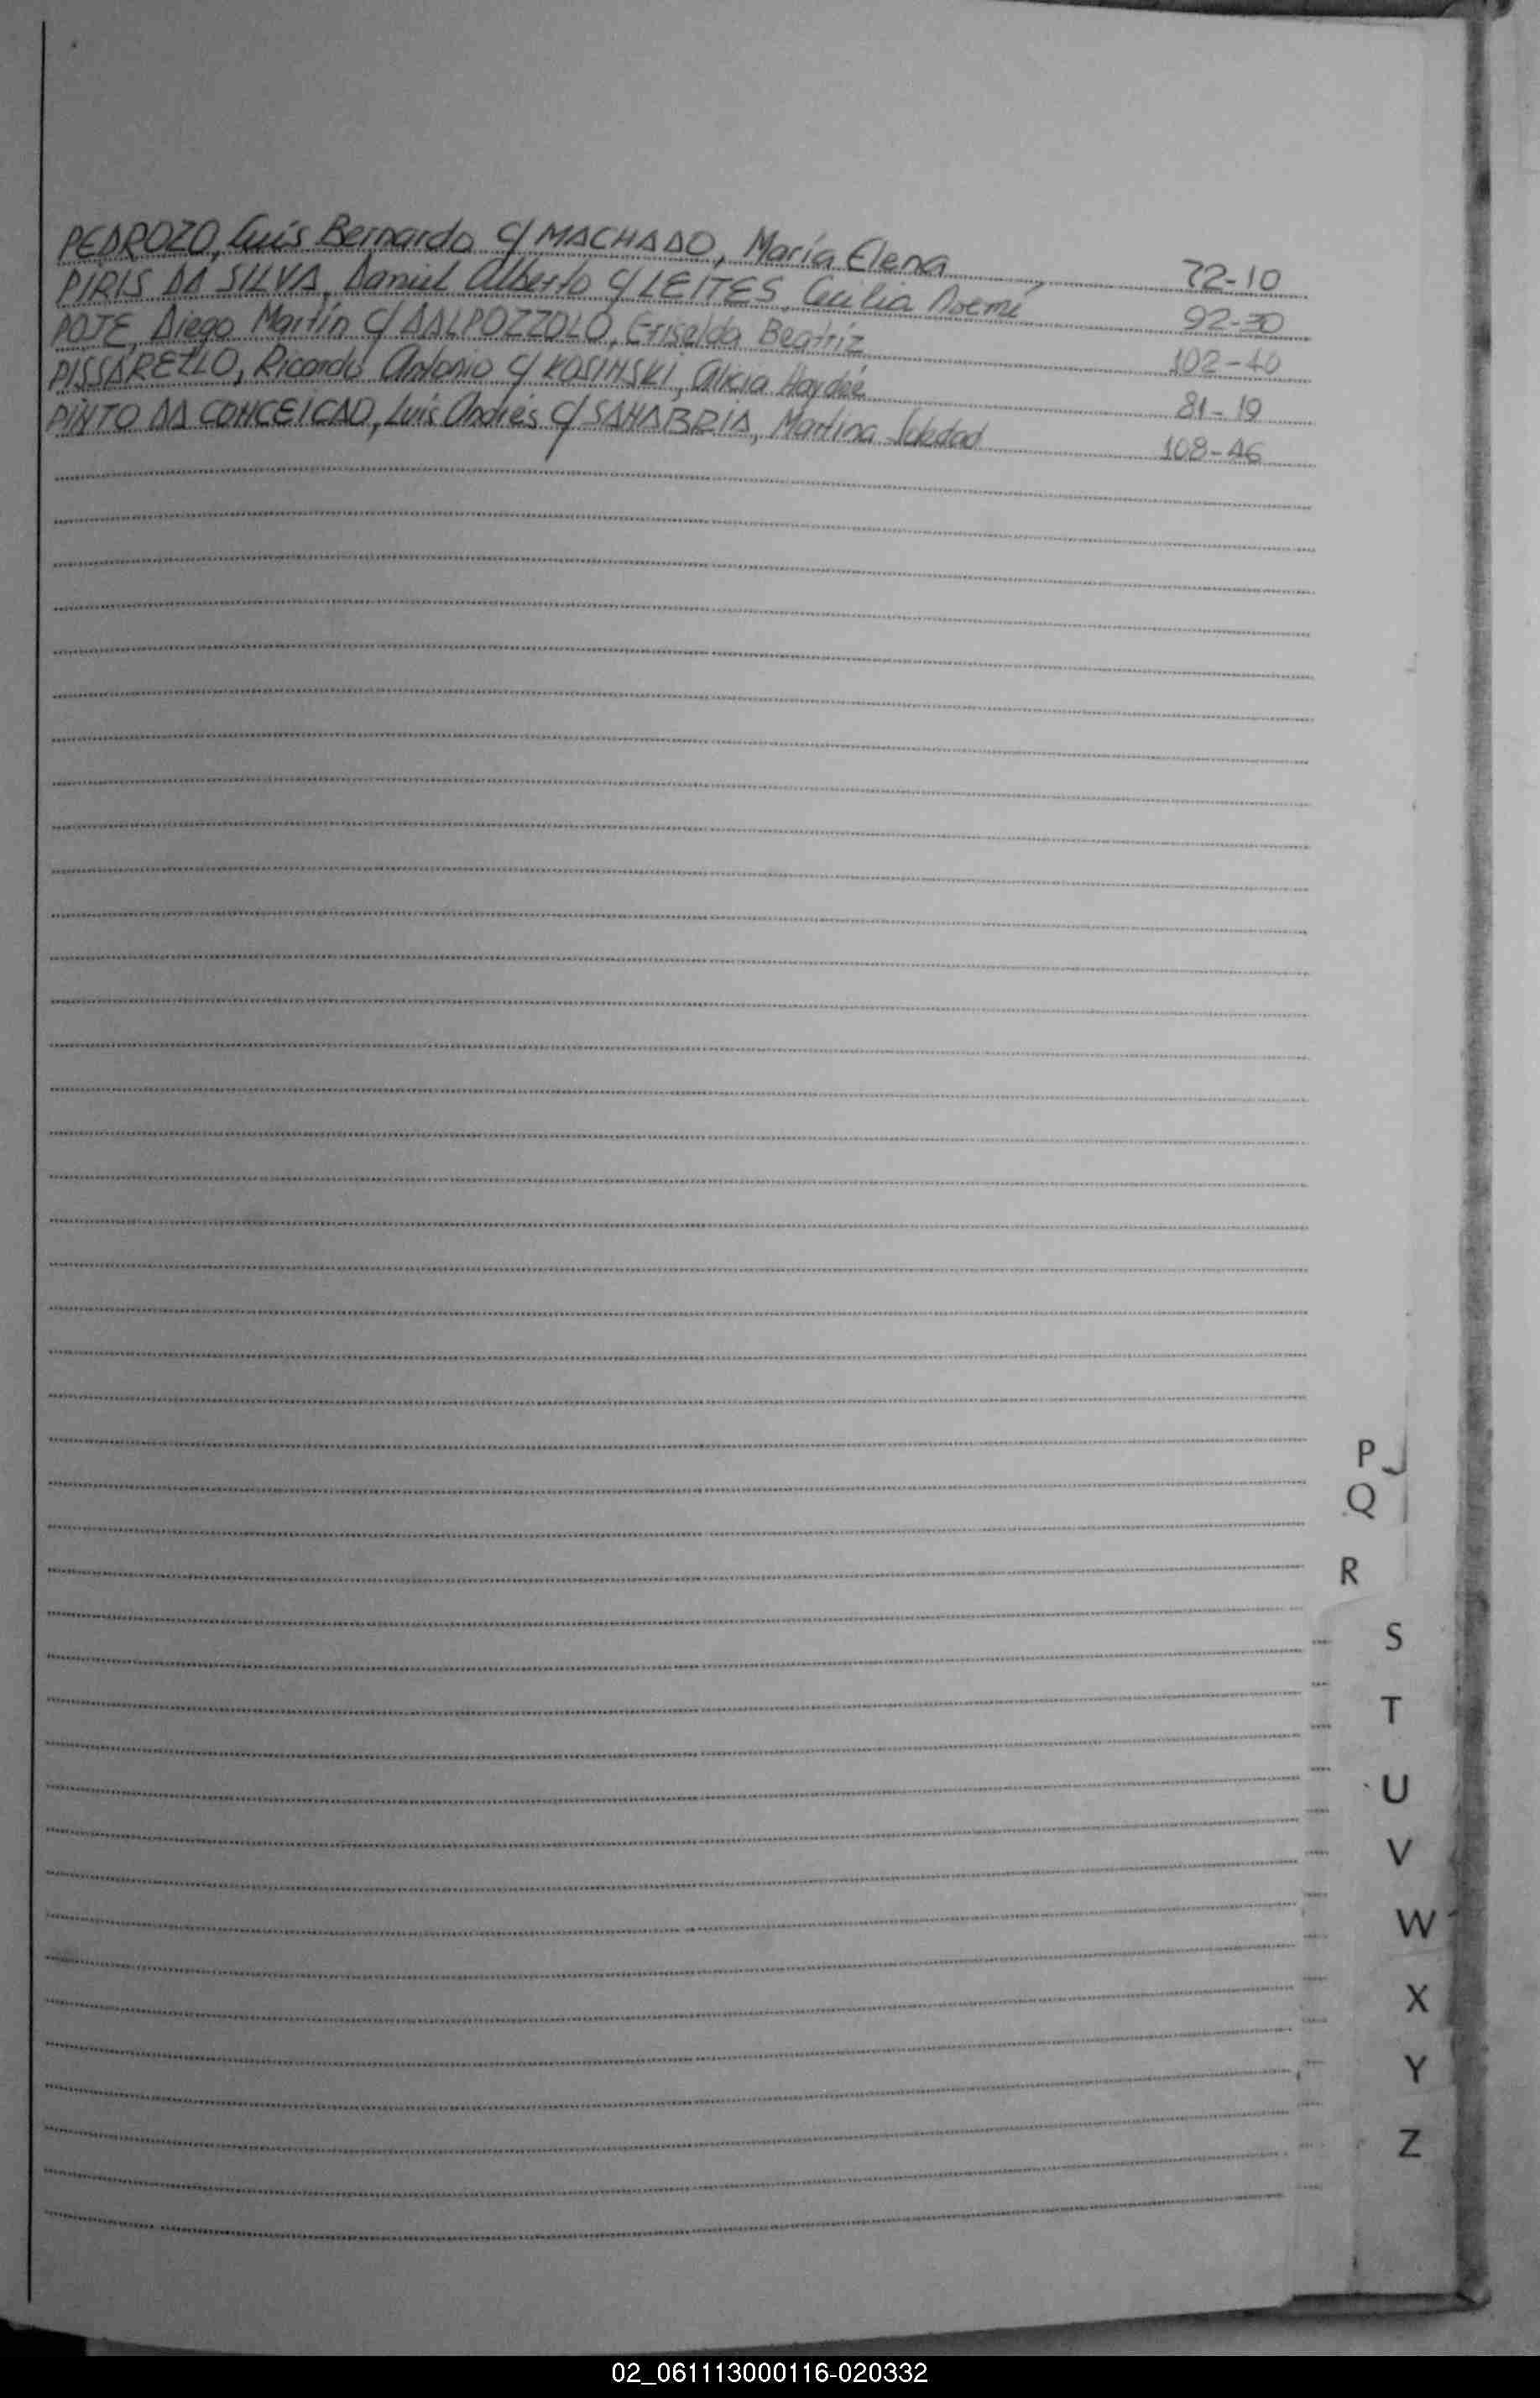 PEDROZO, Luis Bernardo c/ MACHADO, María Elena 72-10
PIRIS DA SILVA, Daniel Alberto c/ LEITES, Cecilia Noemí 92-30
POJE, Diego Martín c/ DALPOZZOLO, Griselda Beatríz 102-40
PISSARELLO, Ricardo Antonio c/ KOSINSKI, Alicia Haydée 81-19
PINTO DA CONCEICAO, Luis Andrés c/ SANABRIA, Martina Soledad 108-46
P
Q
R
S
T
U
V
W
X
Y
Z
02_061113000116-020332